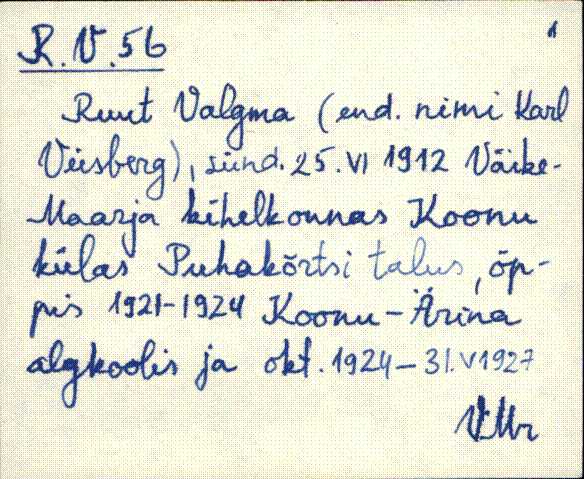 R.V.56
1
Ruut Valgma (end. nimi Karl
Veisberg), sünd. 25.VI 1912 Väike-
Maarja kihelkonnas Koonu
külas Puhakõrtsi talus, õp-
pis 1921–1924 Koonu-Ärina
algkoolis ja okt. 1924–31.V1927